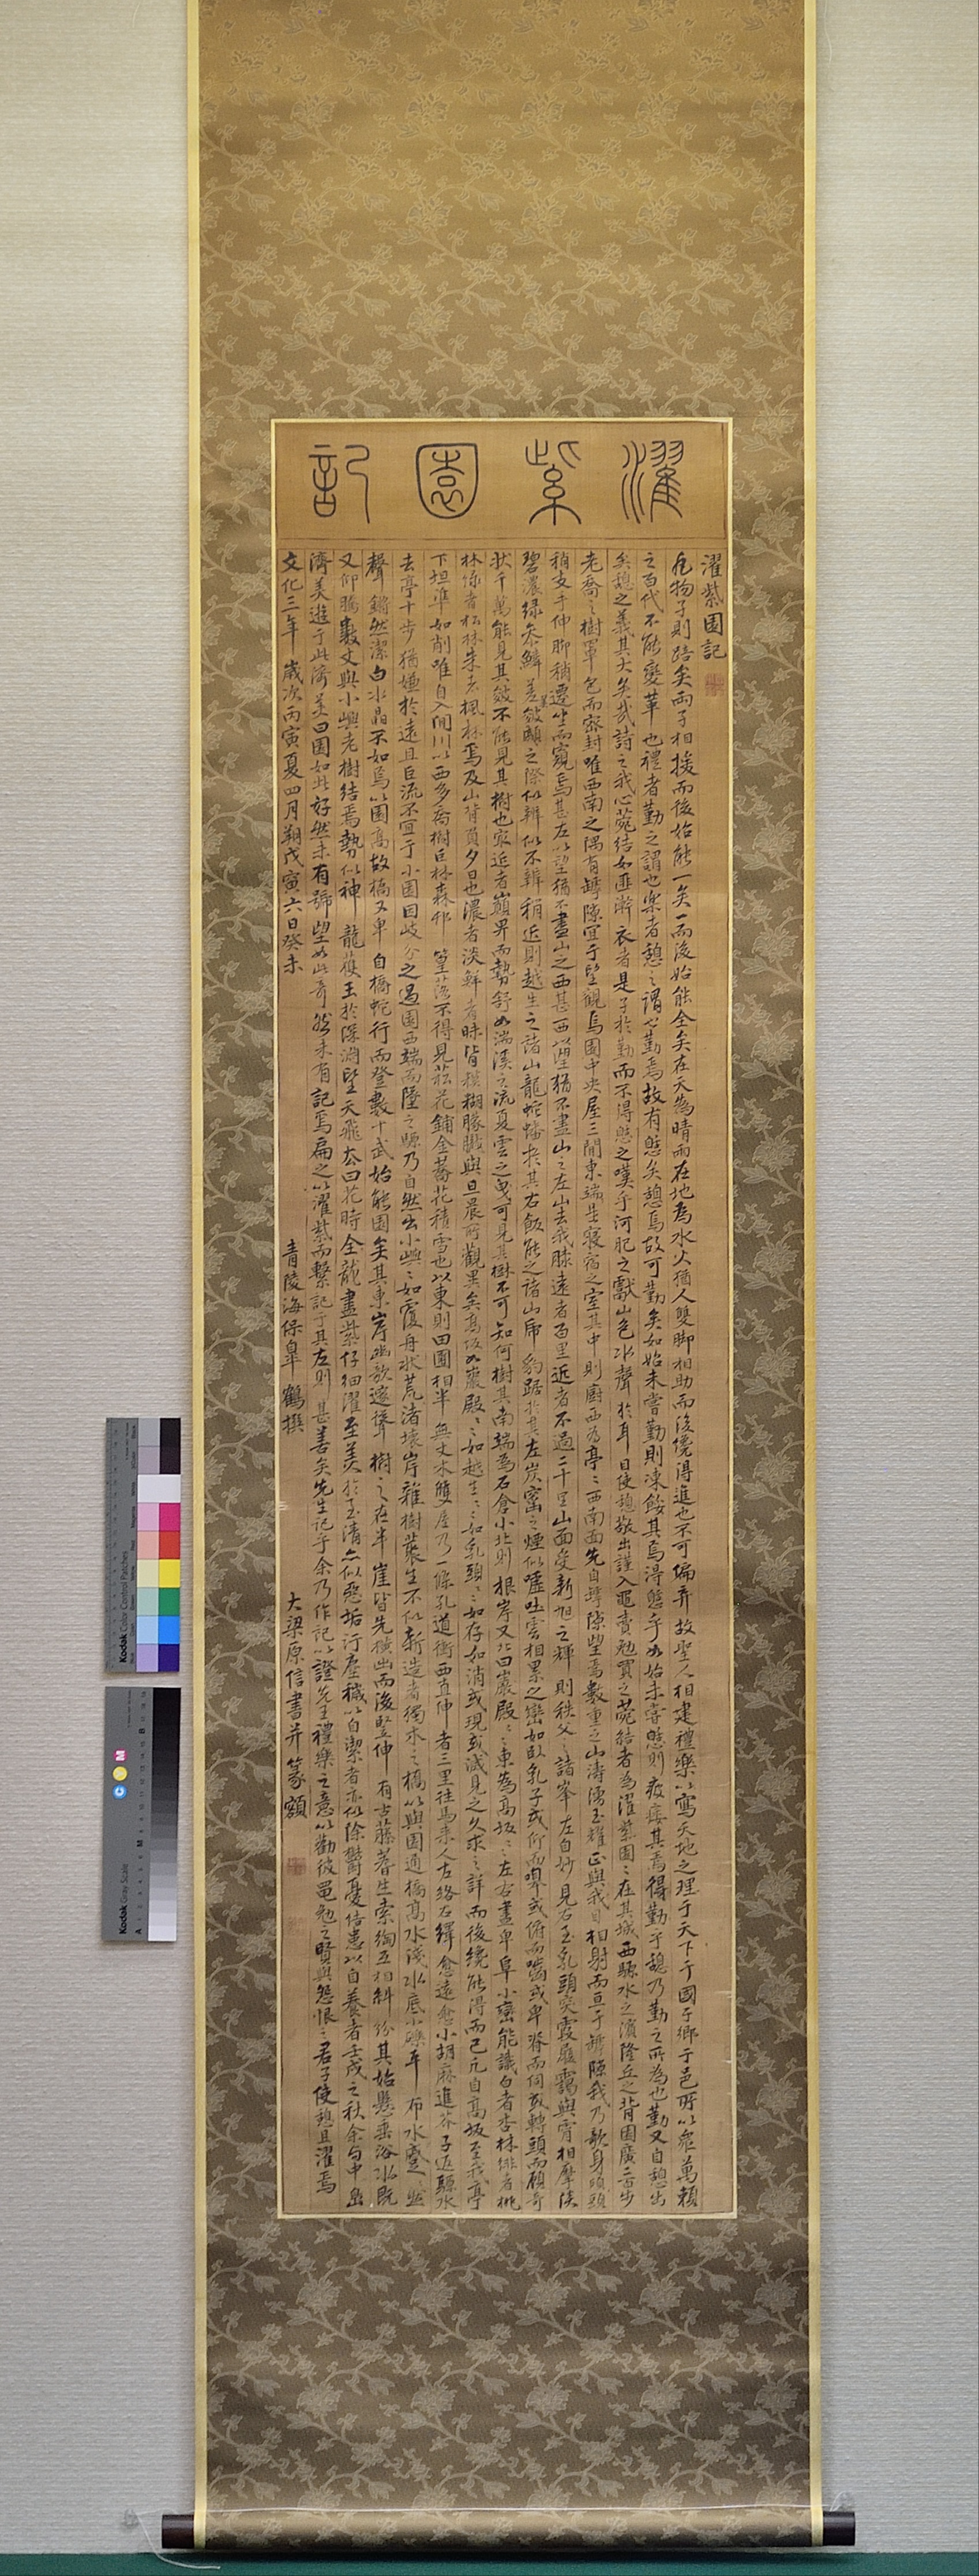 濯紫園記
濯紫園記
凡物孑則踣矣兩孑相接而後始能一矣一而後始能全矣在天為晴雨在地為水火猶人雙脚相助而後纔得進也不可偏弃故聖人相建禮樂以寫天地之理于天下于國于鄉于邑所以衆萬賴
之百代不能變革也禮者勤之謂也樂者憩之謂也勤焉故有憩矣憩焉故可勤矣如始未嘗勤則凍餒其焉得憩乎如始未嘗憩則疲瘘其焉得勤乎憩乃勤之所為也勤又自憩出
矣憩之義其大矣哉詩之我心菀結如匪澣衣者是孑於勤而不得憩之嘆乎河肥之獻山色水聲於耳目使憩敬出謹入黽責勉買之菀結者為濯紫園園在其城西驃水之濱隆丘之背園廣二百步
老喬之樹罩包而密封唯西南之隅有罅隙宜于望觀焉園中央屋三間東端是寢宿之室其中則廚西為亭亭西南面先自罅隙望焉數重之山濤湧玉耀正與我目相射而亘于罅隙我乃歌身頭
稍支手伸脚稍遷坐而窺焉甚左以望猶不盡山之西甚西以望猶不盡山之左山去我膝遠者百里近者不過二十里山面受新旭之輝則秩父諸峯左自妙見右至乳頭突霞巖靄與霄相摩侯
碧濃綠參鱗差皴皺之際似辨似不辨稍近則越生之諸山龍蛇蟠於其右飯能之諸山席豹踞於其左炭窰之煙似噓吐雲相累之巒如臥乳子或仰而嘷或俯而嚙或卑脊而伺或轉頭而顧奇
狀千萬能見其皴不能見其樹也最近者巔畀而勢舒如湍溪之流夏雲之曳可見其樹不可知何樹其南端為石倉小北則根岸又北曰巖殿巖殿東為高坂高坂左右盡卑阜小巒能識白者李林緋者桃
林綠者松林朱者楓林焉及山背負夕日也濃者淡鮮者昧皆模糊朦朧與旦晨所觀異矣高坂如巖殿巖殿如越生越生如乳頭乳頭如存如消或現或滅見之久求之詳而後纔能得而已凡自高坂至我亭
下坦準如削唯自入間川以西多喬樹巨林森邨篁落不得見菘花鋪金蕎花積雪也以東則田圃相半無丈木雙屋乃一條孔道衝西直伸者三里往馬來人左絡右繹愈遠愈小胡麻進芥子返驃水
去亭十步猶嫌於遠且巨流不宜于小園因岐分之過園西端而墮之驃乃自然出小嶼嶼如覆舟狀荒渚壞岸雜樹叢生不似新造者獨木之橋以與園通橋高水淺水底小礫平布水蹙然
聲鏘然潔白水晶不如焉以園高故橋又卑自橋蛇行而登數十武始能園矣其東岸幽欹邃聳樹之在半崖皆先橫出而後竪伸有古藤著生索綯互相糾紛其始懸垂浴水既
又仰騰數丈與小嶼老樹結焉勢似神龍蔭王於深淵望天飛太曰花時全龍盡紫仔細濯至美於玉清亦似惡垢汙塵穢以自潔者亦似除鬱憂佶恚以自養者壬戌之秋余與中島
濟美遊于此濟美曰園如此好然未有號望如此奇然未有記焉扁之以濯紫而繫記于其左則甚善矣先生記乎余乃作記以證先王禮樂之意以勸彼黽勉之賢與怨恨之君子使憩且濯焉
文化三年歲次丙寅夏四月朔戊寅六日癸未 青陵海保皐鶴撰 大梁原信書并篆額